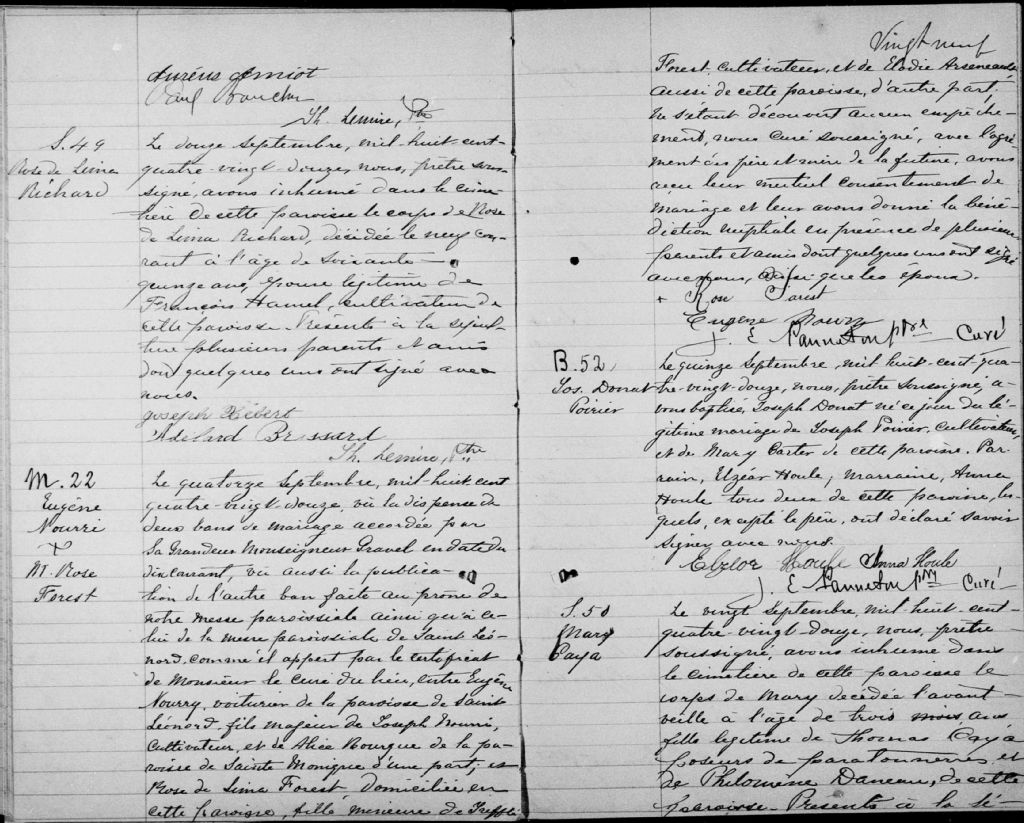 Auréus Amiot
Paul Boucher
Th. Lemire, Ptre
S. 49
Rose de Lima
Richard
Le douze septembre, mil-huit-cent-
quatre-vingt-douze, nous, prêtre sous-
signé, avons inhumé dans le cime-
tière de cette paroisse le corps de Rose
de Lima Richard, décédée le neuf cou-
rant à l'âge de soixante-
quinze ans, épouse légitime de
François Hamel, cultivateur de
cette paroisse. Présents à la sépul-
ture plusieurs parents et amis
dont quelques uns ont signé avec
nous.
Joseph Hébert
Adelard Brossard
Th. Lemire, Ptre
M. 22
Eugène
Nourri
&
M. Rose
Forest
Le quatorze septembre, mil-huit-cent
quatre-vingt-douze, vu la dispense de
deux bans de mariage accordée par
Sa Grandeur Monseigneur Gravel en date du
dix courant, vu aussi la publica-
tion de l'autre ban faite au prône de
notre messe paroissiale ainsi qu'à ce-
lui de la messe paroissiale de Saint Léo-
nard, comme il appert par le certificat
de Monsieur le Curé du lieu, entre Eugène
Nourry, voiturier de la paroisse de Saint
Léonard, fils majeur de Joseph Nourri,
cultivateur, et de Alice Bourque de la pa-
roisse de Sainte Monique d'une part; et
Rose de Lima Forest domiciliée en
cette paroisse, fille mineure de Trefflé
Vingt neuf
Forest, cultivateur, et de Elodie Arseneault
aussi de cette paroisse, d'autre part,
ne s'étant découvert aucun empêche-
ment, nous curé soussigné, avec l'agré-
ment des père et mère de la future, avons
reçu leur mutuel consentement de
mariage et leur avons donné la béné-
diction nuptiale en présence de plusieurs
parents et amis dont quelques uns ont signé
avec nous, ainsi que les époux.
+ Rose Forest
Eugene Nourry
J. E. Panneton ptre Curé
B. 52
Jos. Donat
Poirier
Le quinze septembre, mil huit-cent qua-
tre-vingt-douze, nous, prêtre soussigné, a-
vons baptisé, Joseph Donat né ce jour du lé-
gitime mariage de Joseph Poirier, cultivateur,
et de Mary Carter de cette paroisse. Par-
rain, Elzéar Houle, marraine, Anna
Houle tous deux de cette paroisse, les-
quels, excepté le père, ont déclaré savoir
signer avec nous.
Elzéar Houle Anna Houle
J. E. Panneton ptre Curé
S. 50
Mary
Caya
Le vingt septembre, mil huit-cent-
quatre-vingt-douze, nous, prêtre
soussigné, avons inhumé dans
le cimetière de cette paroisse le
corps de Mary décédée l'avant
veille à l'âge de trois mois, ans
fille légitime de Thomas Caya
poseurs de paratonnerres, et
de Philomène Daneau, de cette
paroisse. Présents à la sé-